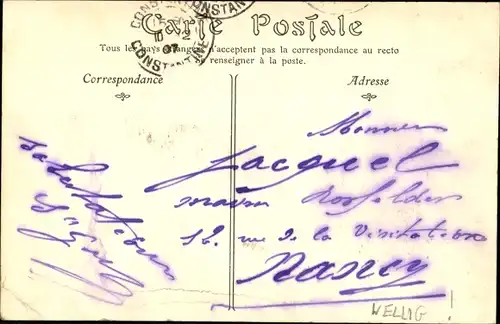 Carte Postale
Tous les pays étrangers n'acceptent pas la correspondance au recto
Se renseigner à la poste.
Correspondance
Adresse
CONSTANTINE
CONSTANTINE
07
Monsieur
Jacquel
maison
12, rue de la Visitation
Nancy
Salutations
WELLIG !